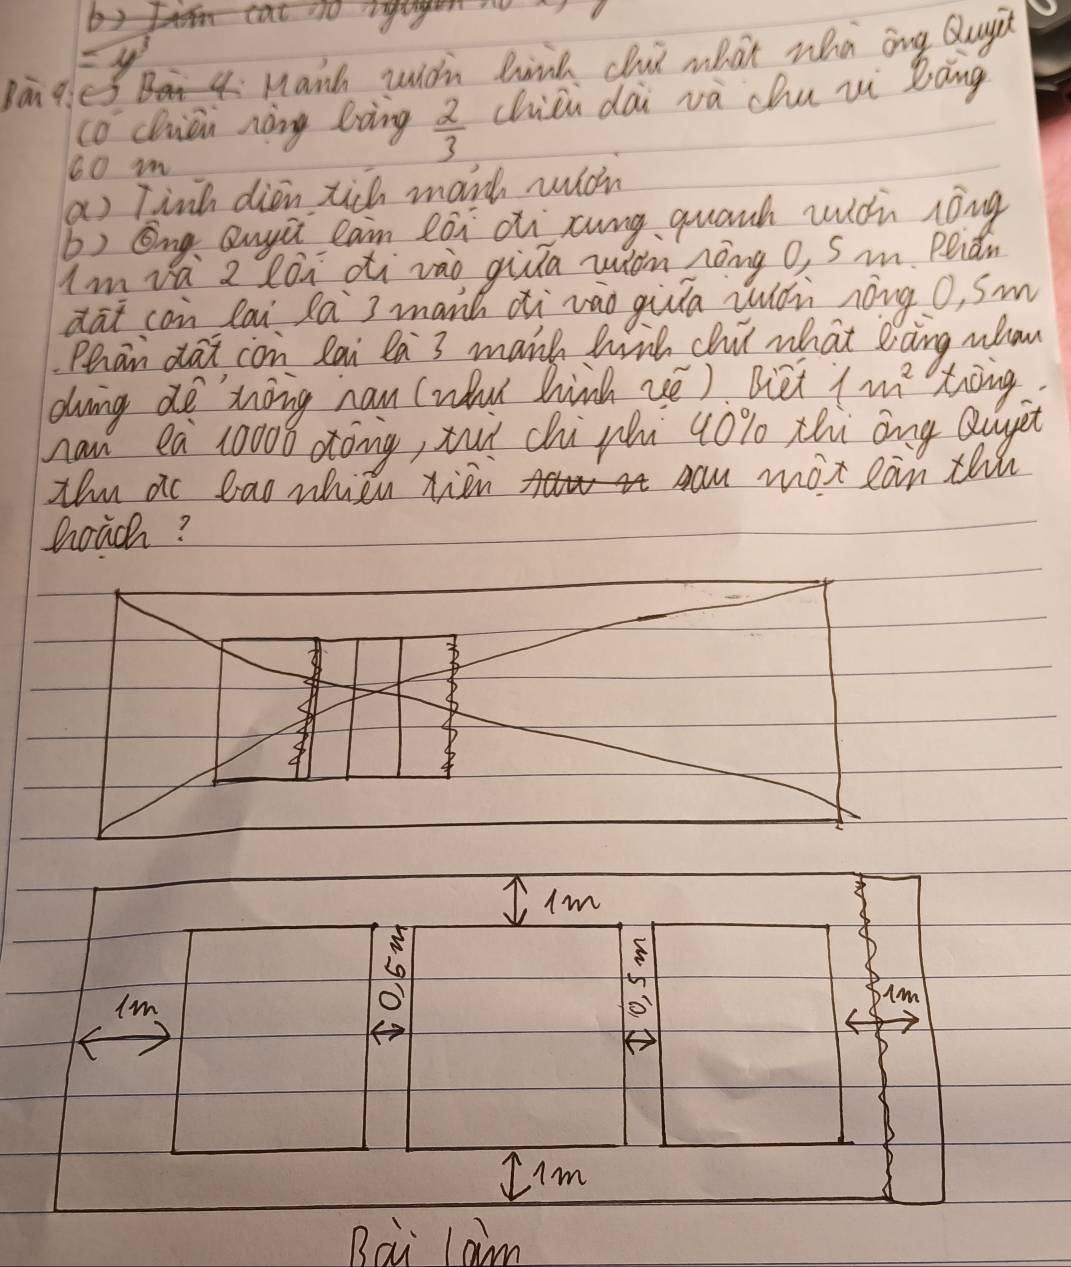 b) Tìm các số nguyên
= y³
Bài 4: c) Bài 4: Mảnh vườn hình chữ nhật nhà ông Quyết
có chiều rộng bằng 2/3 chiều dài và chu vi bằng
60 m
a) Tính diện tích mảnh vườn
b) Ông Quyết làm lối đi xung quanh vườn rộng
1m và 2 lối đi vào giữa vườn rộng 0,5 m. Phần
đất còn lại là 3 mảnh đi vào giữa vườn rộng 0,5m
. Phần đất còn lại là 3 mảnh hình chữ nhật bằng nhau
dùng để trồng rau (như hình vẽ). Biết 1 m² trồng
rau là 10000 đồng, trừ chi phí 40% thì ông Quyết
thu đc bao nhiêu tiền sau một lần thu
hoạch?
1m
0,5m
0,5m
1m
1m
1m
Bài làm